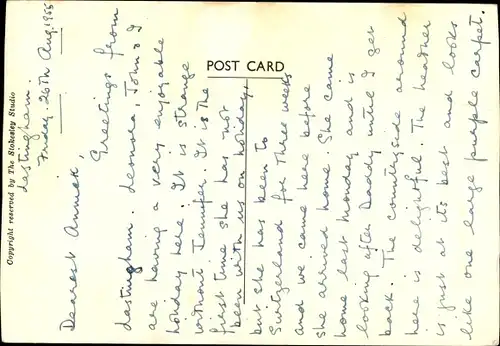 Lastingham.
Friday, 26th Aug. 1955
Dearest Annick,
Greetings from
Lastingham. Leonora, John & I
are having a very enjoyable
holiday here. It is strange
without Jennifer. It is the
first time she has not
been with us on holiday,
but she has been to
Switzerland for three weeks
and we came here before
she arrived home. She came
home last Monday and is
looking after Daddy until I get
back. The countryside around
here is delightful. The heather
is just at its best and looks
like one large purple carpet.
POST CARD
Copyright reserved by The Stokesley Studio